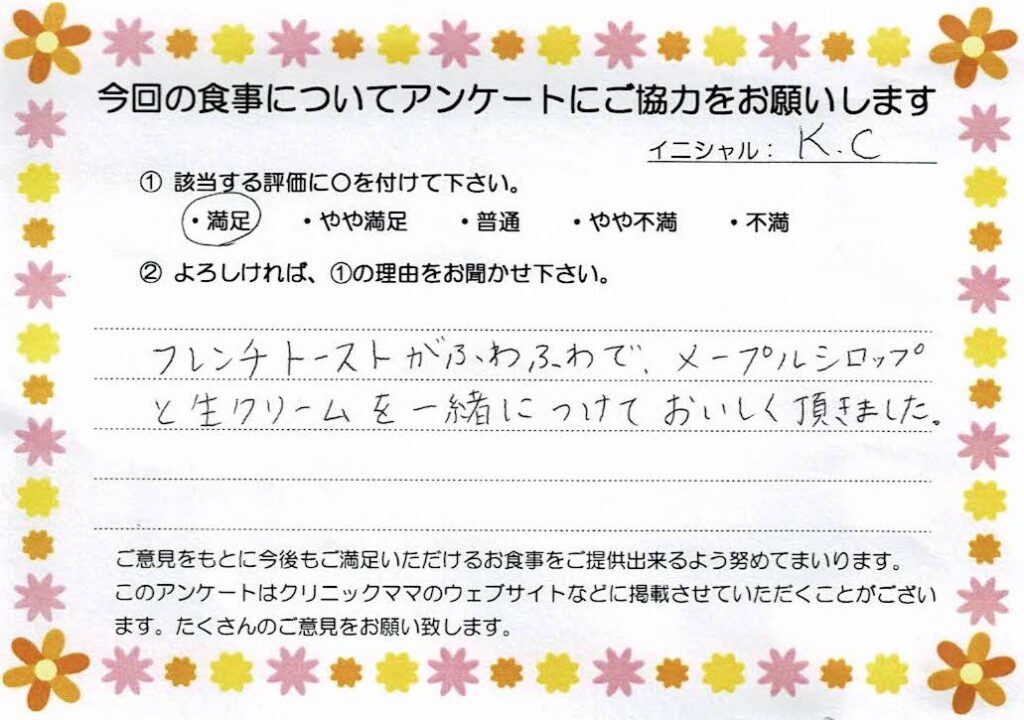 今回の食事についてアンケートにご協力をお願いします
イニシャル： K.C
① 該当する評価に〇を付けて下さい。
・満足 ・やや満足 ・普通 ・やや不満 ・不満
② よろしければ、①の理由をお聞かせ下さい。
フレンチトーストがふわふわで、メープルシロップ
と生クリームを一緒につけておいしく頂きました。
ご意見をもとに今後もご満足いただけるお食事をご提供出来るよう努めてまいります。
このアンケートはクリニックママのウェブサイトなどに掲載させていただくことがござい
ます。たくさんのご意見をお願い致します。